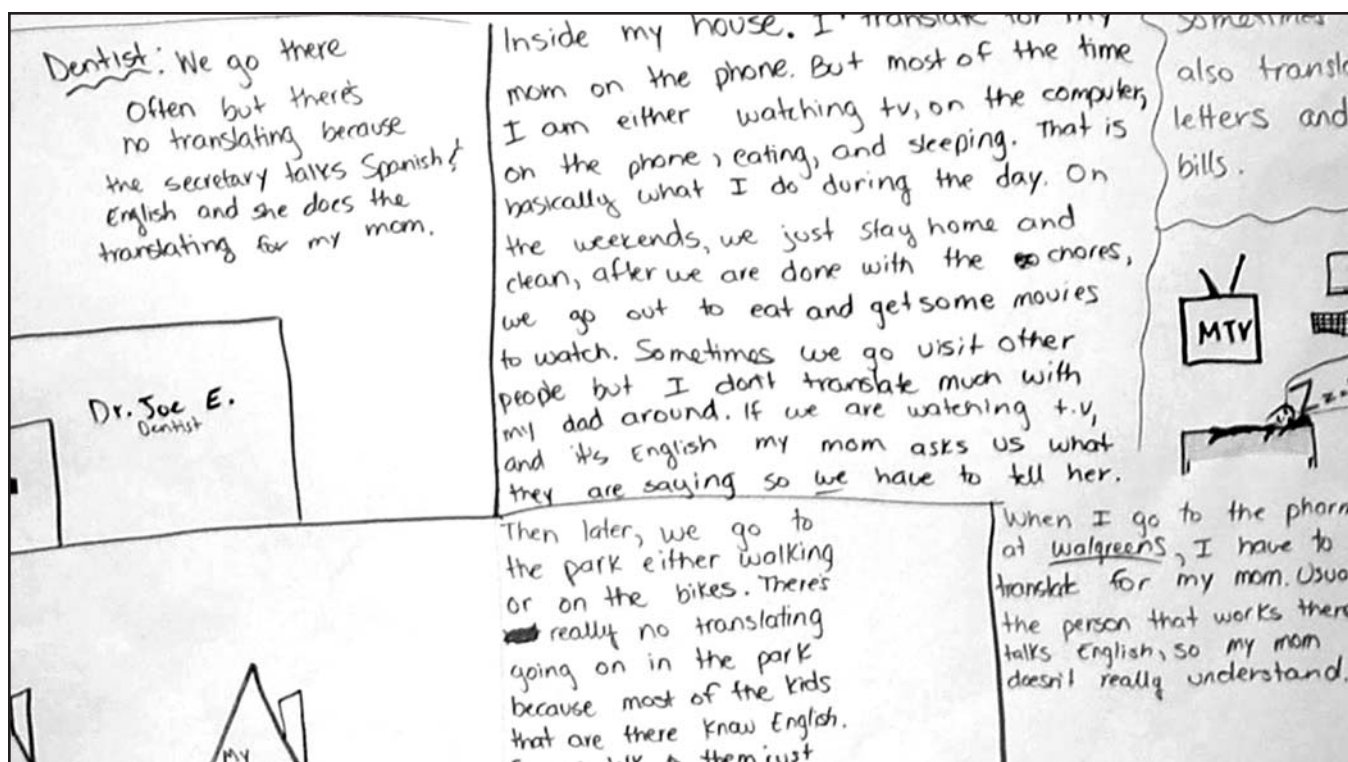 Dentist: We go there
Often but there's
no translating because
the secretary talks Spanish &
English and she does the
translating for my mom.
Dr. Joe E.
Dentist
Inside my house. I translate for my
mom on the phone. But most of the time
I am either watching tv, on the computer,
on the phone, eating, and sleeping. That is
basically what I do during the day. On
the weekends, we just stay home and
clean, after we are done with the chores,
we go out to eat and get some movies
to watch. Sometimes we go visit other
people but I don't translate much with
my dad around. If we are watching t.v,
and it's English my mom asks us what
they are saying so we have to tell her.
Sometimes
also
letters and
bills.
MTV
Zzz
Then later, we go to
the park either walking
or on the bikes. There's
really no translating
going on in the park
because most of the kids
that are there know English.
them just
When I go to the
at Walgreens, I have to
translate for my mom.
the person that works there
talks English, so my mom
doesn't really understand.
My